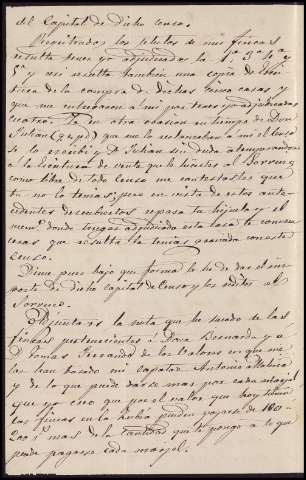 del Capital de dicho censo.
Registrados los titulos de mis fincas
resulta tener yo adjudicadas la 1ª 3ª 4ª y
5ª y así resulta tambien una copia de Escri
tura de la compra de dichas cinco casas y
que me entregaron a mi por tener yo adjudicadas
cuatro. Ya en otra ocasion en tiempo de Don
Julian (q.e.p.d) que me lo reclamaban a mi el Censo
se lo escribi y D. Julian sin duda
a la Escritura de venta que le hicieron al Sorruco
como libre de todo Censo me contestastes que
tu no lo tenias; pero en vista de estos ante
cedentes descubiertos repasa tu hijuela y el
donde tengas adjudicada esta casa te conven
ceras que resulta la tenias gravada con este
Censo.
Dime pues bajo que forma le he de dar el im
porte del dicho capital de Censo y los réditos al
Sorruco.
Adjunta es la nota que he sacado de las
fincas pertenecientes á Dona Bernarda y a
D. Tomas Ferrando de los Valores en que me
las han tasado mi capataz Antonio
y de lo que puede darse mas por cada marjal
que yo creo que por el valor que hoy tienen
las fincas en la Rubia pueden pagarse de 100 a
200 r.s mas de la cantidad que te pongo a lo que
puede pagarse cada marjal.